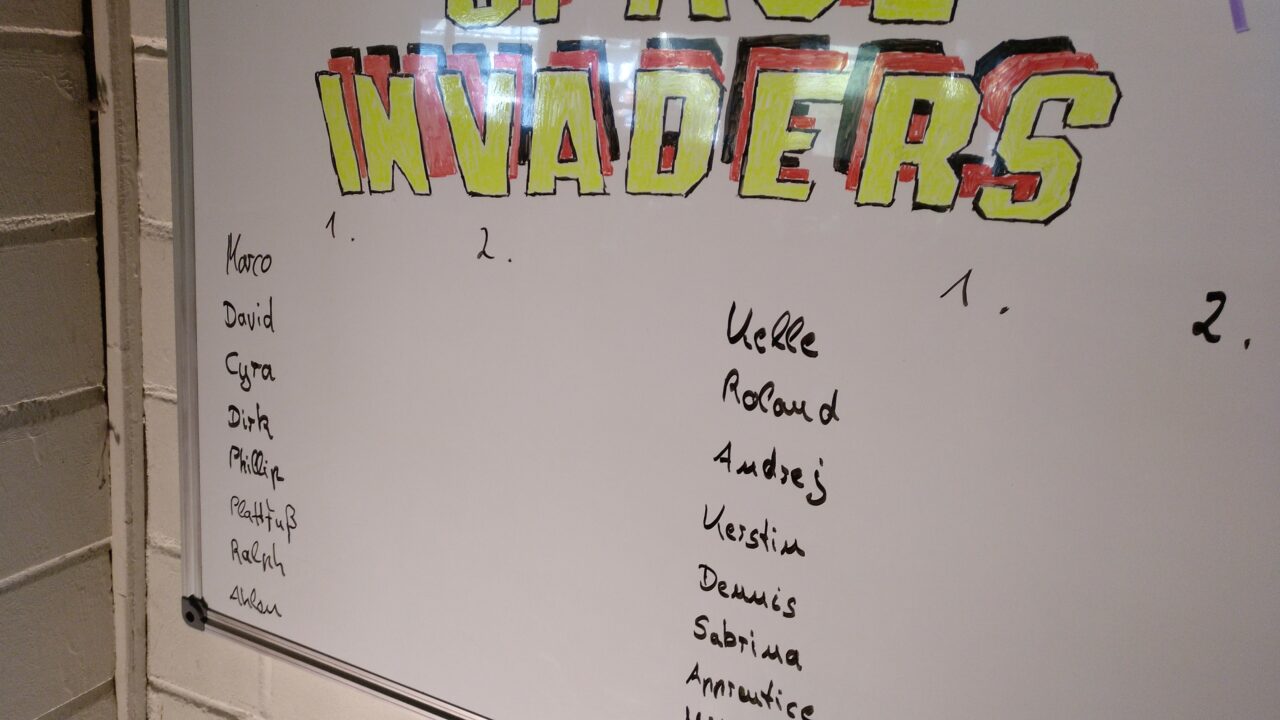 SPACE
INVADERS
1. 2.
Marco
David
Cyra
Dirk
Phillip
Plattfuß
Ralph
Ahlau
1. 2.
Kelle
Roland
Andrej
Kerstin
Dennis
Sabrina
Apprentice